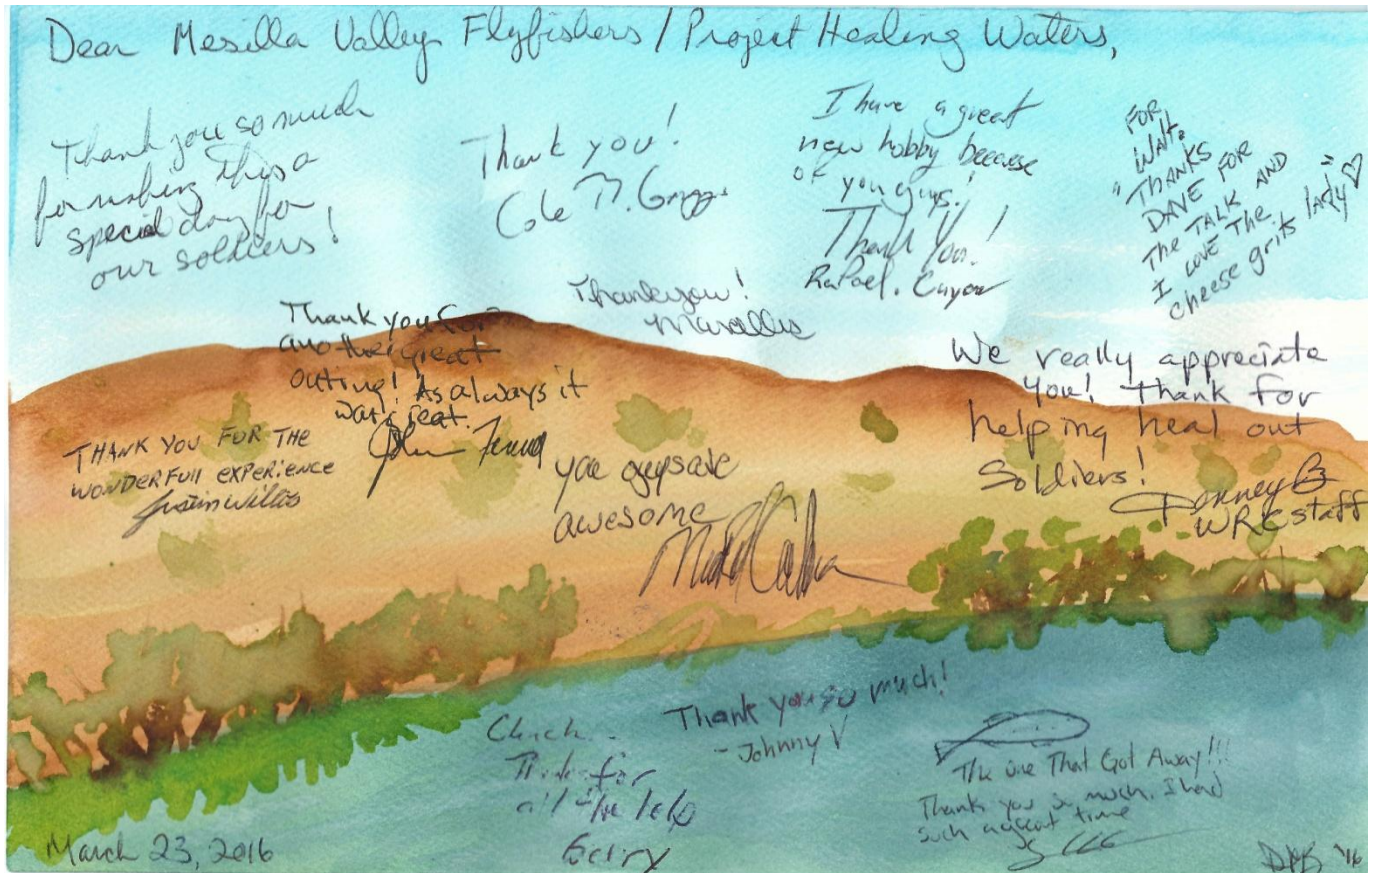 Dear Mesilla Valley Flyfishers / Project Healing Waters,
Thank you so much
for making this a
special day for
our soldiers!
Thank you!
Cole M.
I have a great
new hobby because
of you guys!
Thank You!
Rafael.
FOR
WALT.
"THANKS
DAVE FOR
THE TALK AND
I LOVE THE
cheese grits lady" ♡
Thank you!
Marcellis
Thank you for
another great
outing! As always it
was great.
John
We really appreciate
you! Thank for
helping heal out
Soldiers!
Penney B
WRC staff
THANK YOU FOR THE
WONDERFull EXPERiENCE
Justin Willis
you guys are
awesome
Thank you so much!
- Johnny V
Chuck -
Thanks for
all the help
Gerry
The one That Got Away!!!
Thank you so much. I had
such a great time
March 23, 2016
'16